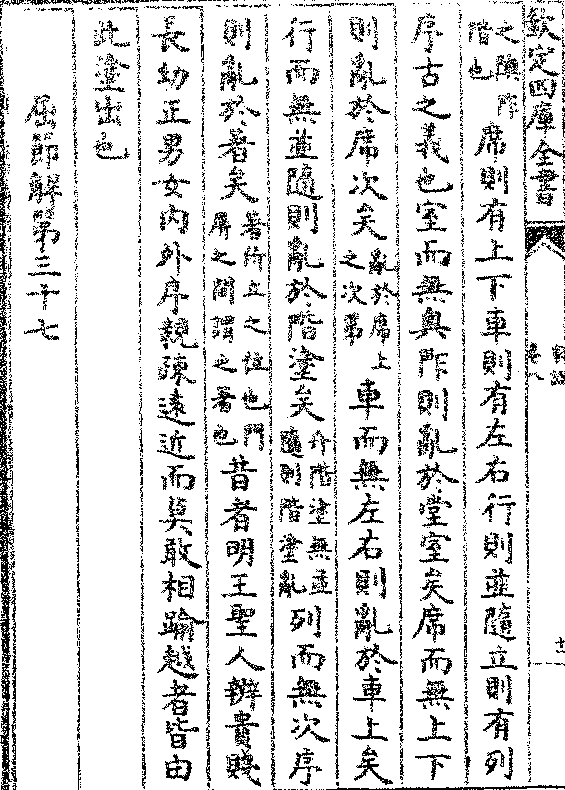 欽定四庫全書
之隩阼階也席則有上下車則有左右行則並隨立則有列
序古之義也室而無奥阼則亂於堂室矣席而無上下
則亂於席次矣亂於席上之次第車而無左右則亂於車上矣
行而無並隨則亂於階塗矣升階塗無並隨則階塗亂列而無次序
則亂於著矣著所立之位也門屏之間謂之著也昔者明王聖人辨貴賤
長幼正男女内外序親疎遠近而莫敢相踰越者皆由
此塗出也
屈節解第三十七